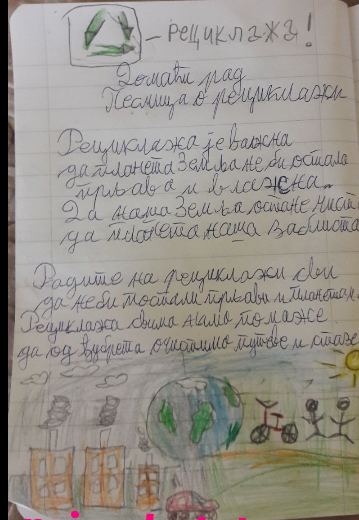 – РЕЦИКЛАЖА!
Домаћи рад
Песмица о рециклажи
Рециклажа је важна
да планета Земља не би остала
прљава и влажна.
Да наша Земља остане чиста
да планета наша заблиста
Радите на рециклажи сви
да не би постали прљави и планета
Рециклажа свима нама помаже
да од ђубрета очистимо путеве и стазе